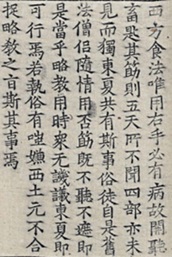 西方食法唯用右手必有病故開聽
畜匙其筯則五天所不聞四部亦未
見而獨東夏共有斯事俗徒自是舊
法僧侶隨情用否筯既不聽不遮即
是當乎略教用時衆無譏議東夏即
可行焉若執俗有嗤嫌西土元不合
捉略教之旨斯其事焉